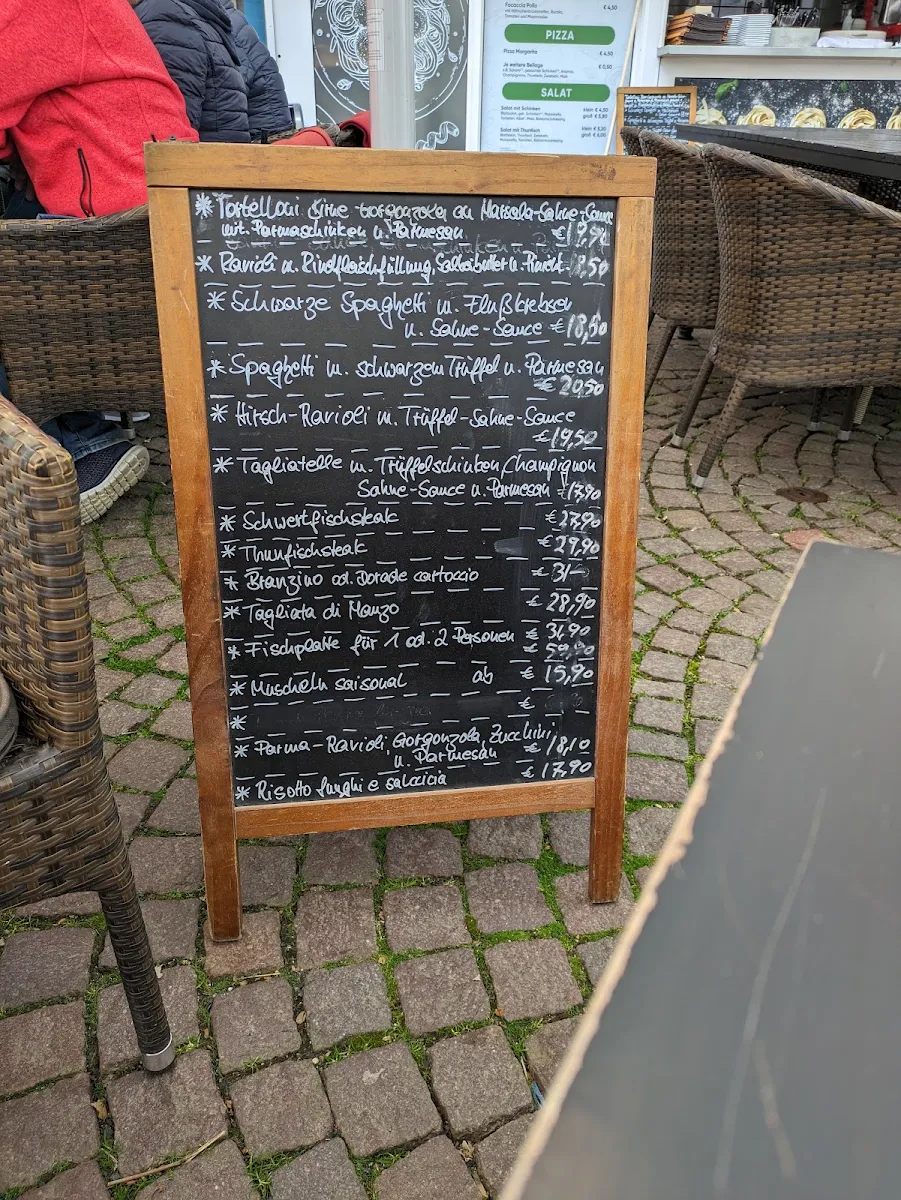 Focaccia Pollo
€ 4,50
PIZZA
Pizza Margarita
€ 4,50
Je weitere Beilage
€ 0,50
SALAT
Salat mit Schinken
klein € 4,50
groß € 5,80
Salat mit Thunfisch
* Tortelloni Birne Gorgonzola an Marsala-Sahne-Sauce
mit Parmaschinken u. Parmesan €19,90
* Ravioli m. Rindfleischfüllung, Salbeibutter u. 18,50
* Schwarze Spaghetti m. Flußkrebsen
u. Sahne-Sauce €18,50
* Spaghetti m. schwarzem Trüffel u. Parmesan
€20,50
* Hirsch-Ravioli m. Trüffel-Sahne-Sauce
€19,50
* Tagliatelle m. Trüffelschinken, Champignon
Sahne-Sauce u. Parmesan €17,90
* Schwertfischsteak €27,90
* Thunfischsteak €29,90
* Branzino od. Dorade cartoccio €31-
* Tagliata di Manzo € 28,90
* Fischplatte für 1 od. 2 Personen € 31,90
€ 59,90
* Muscheln saisonal ab € 15,90
* €
* Parma-Ravioli, Gorgonzola, Zucchini
u. Parmesan € 18,10
* Risotto funghi e salcicia € 17,90